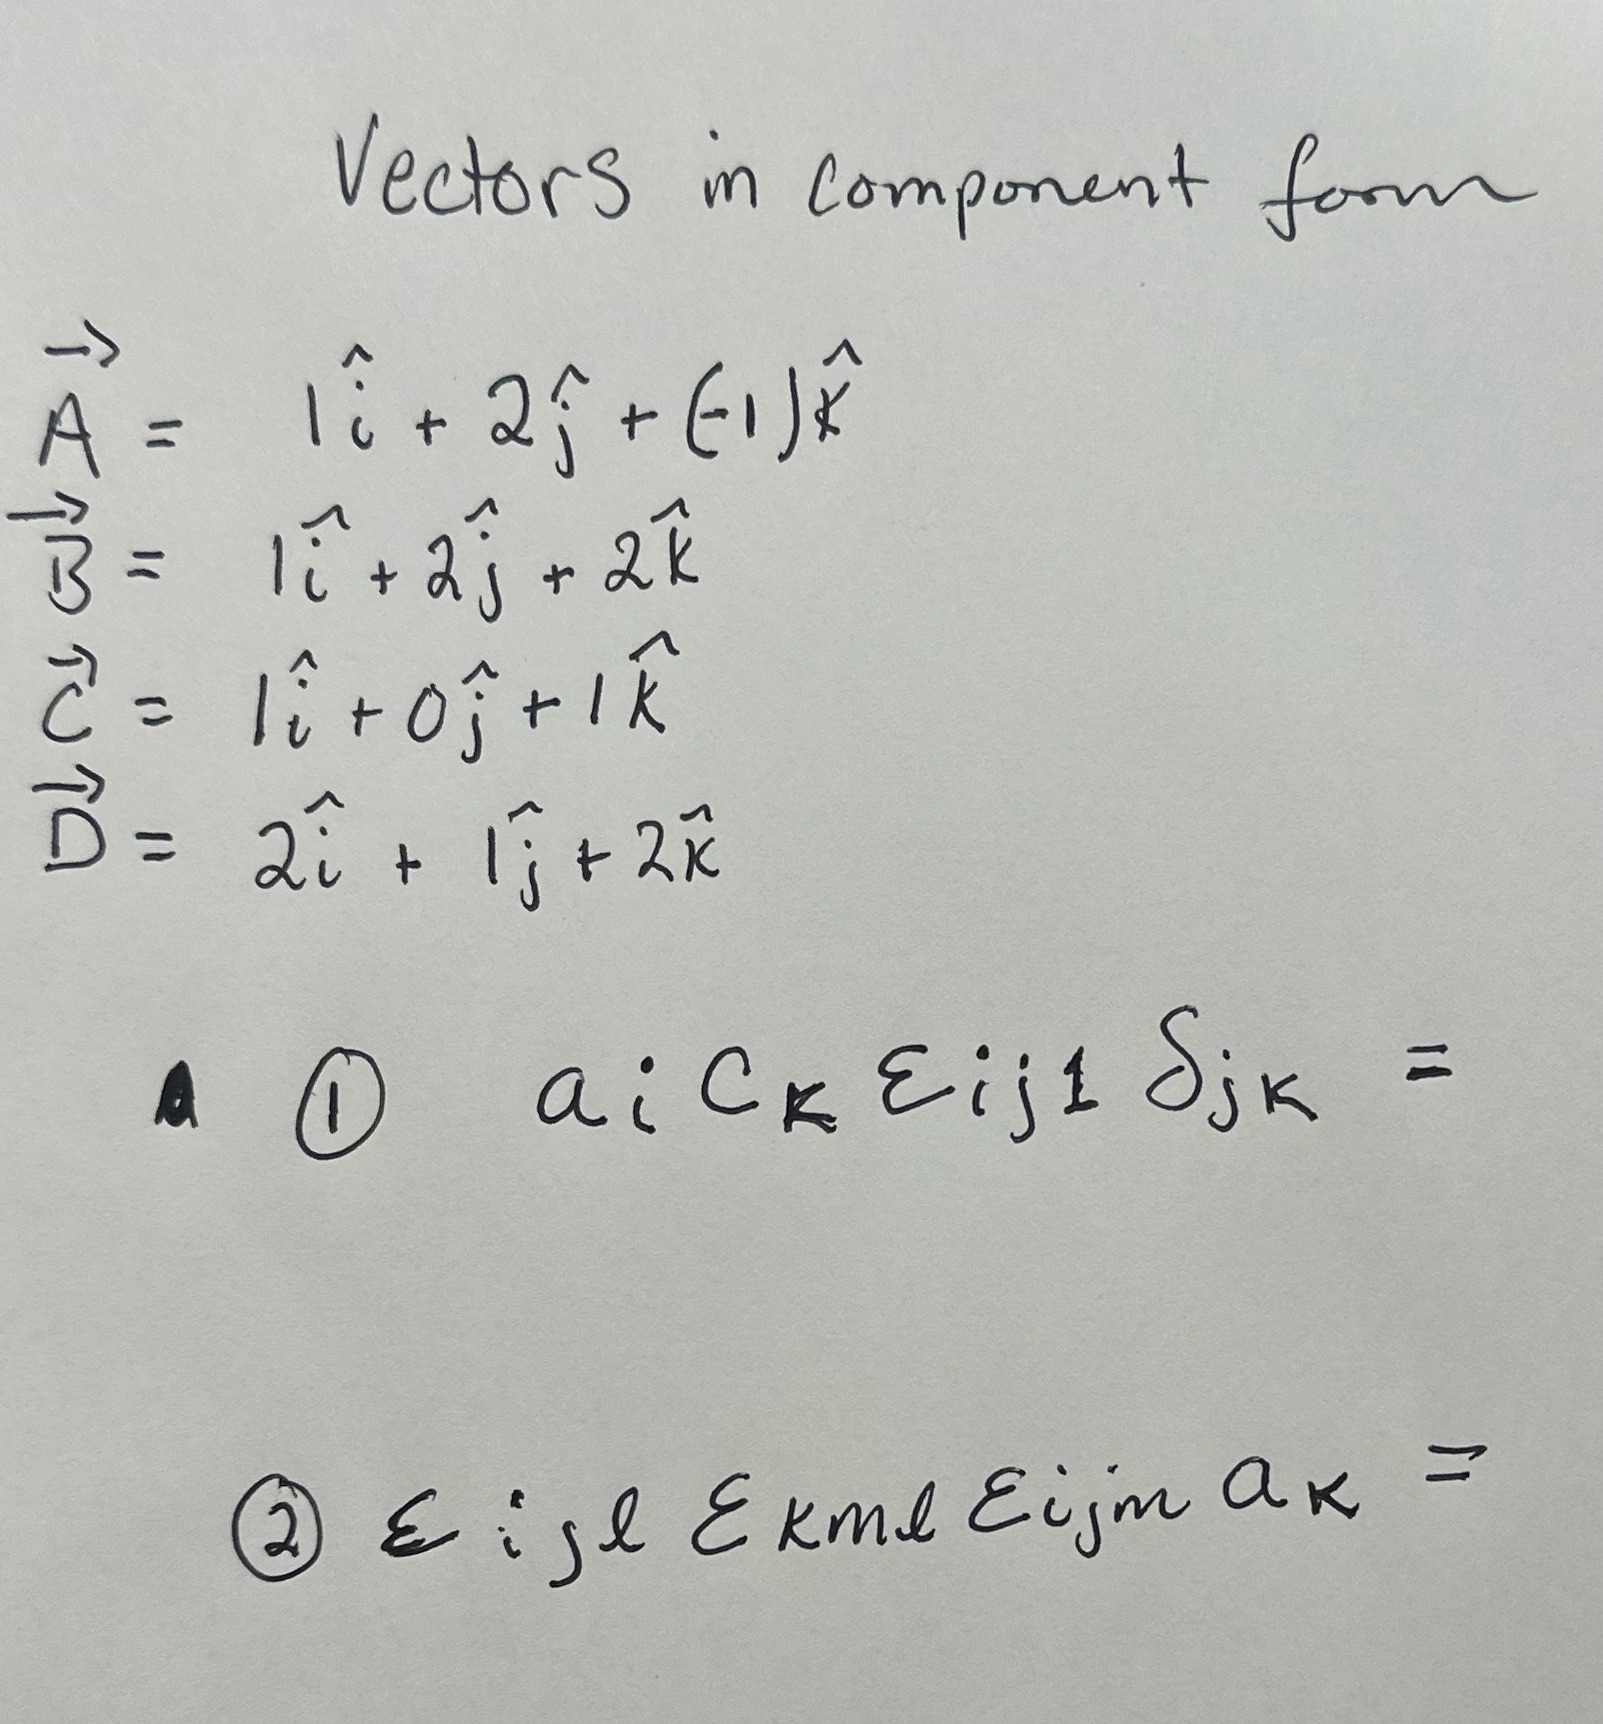 Vectors in component form
A⃗ = 1î + 2ĵ + (-1)k̂
B⃗ = 1î + 2ĵ + 2k̂
C⃗ = 1î + 0ĵ + 1k̂
D⃗ = 2î + 1ĵ + 2k̂
① aᵢ cₖ εᵢⱼ₁ δⱼₖ =
② εᵢⱼₗ εₖₘₗ εᵢⱼₘ aₖ =